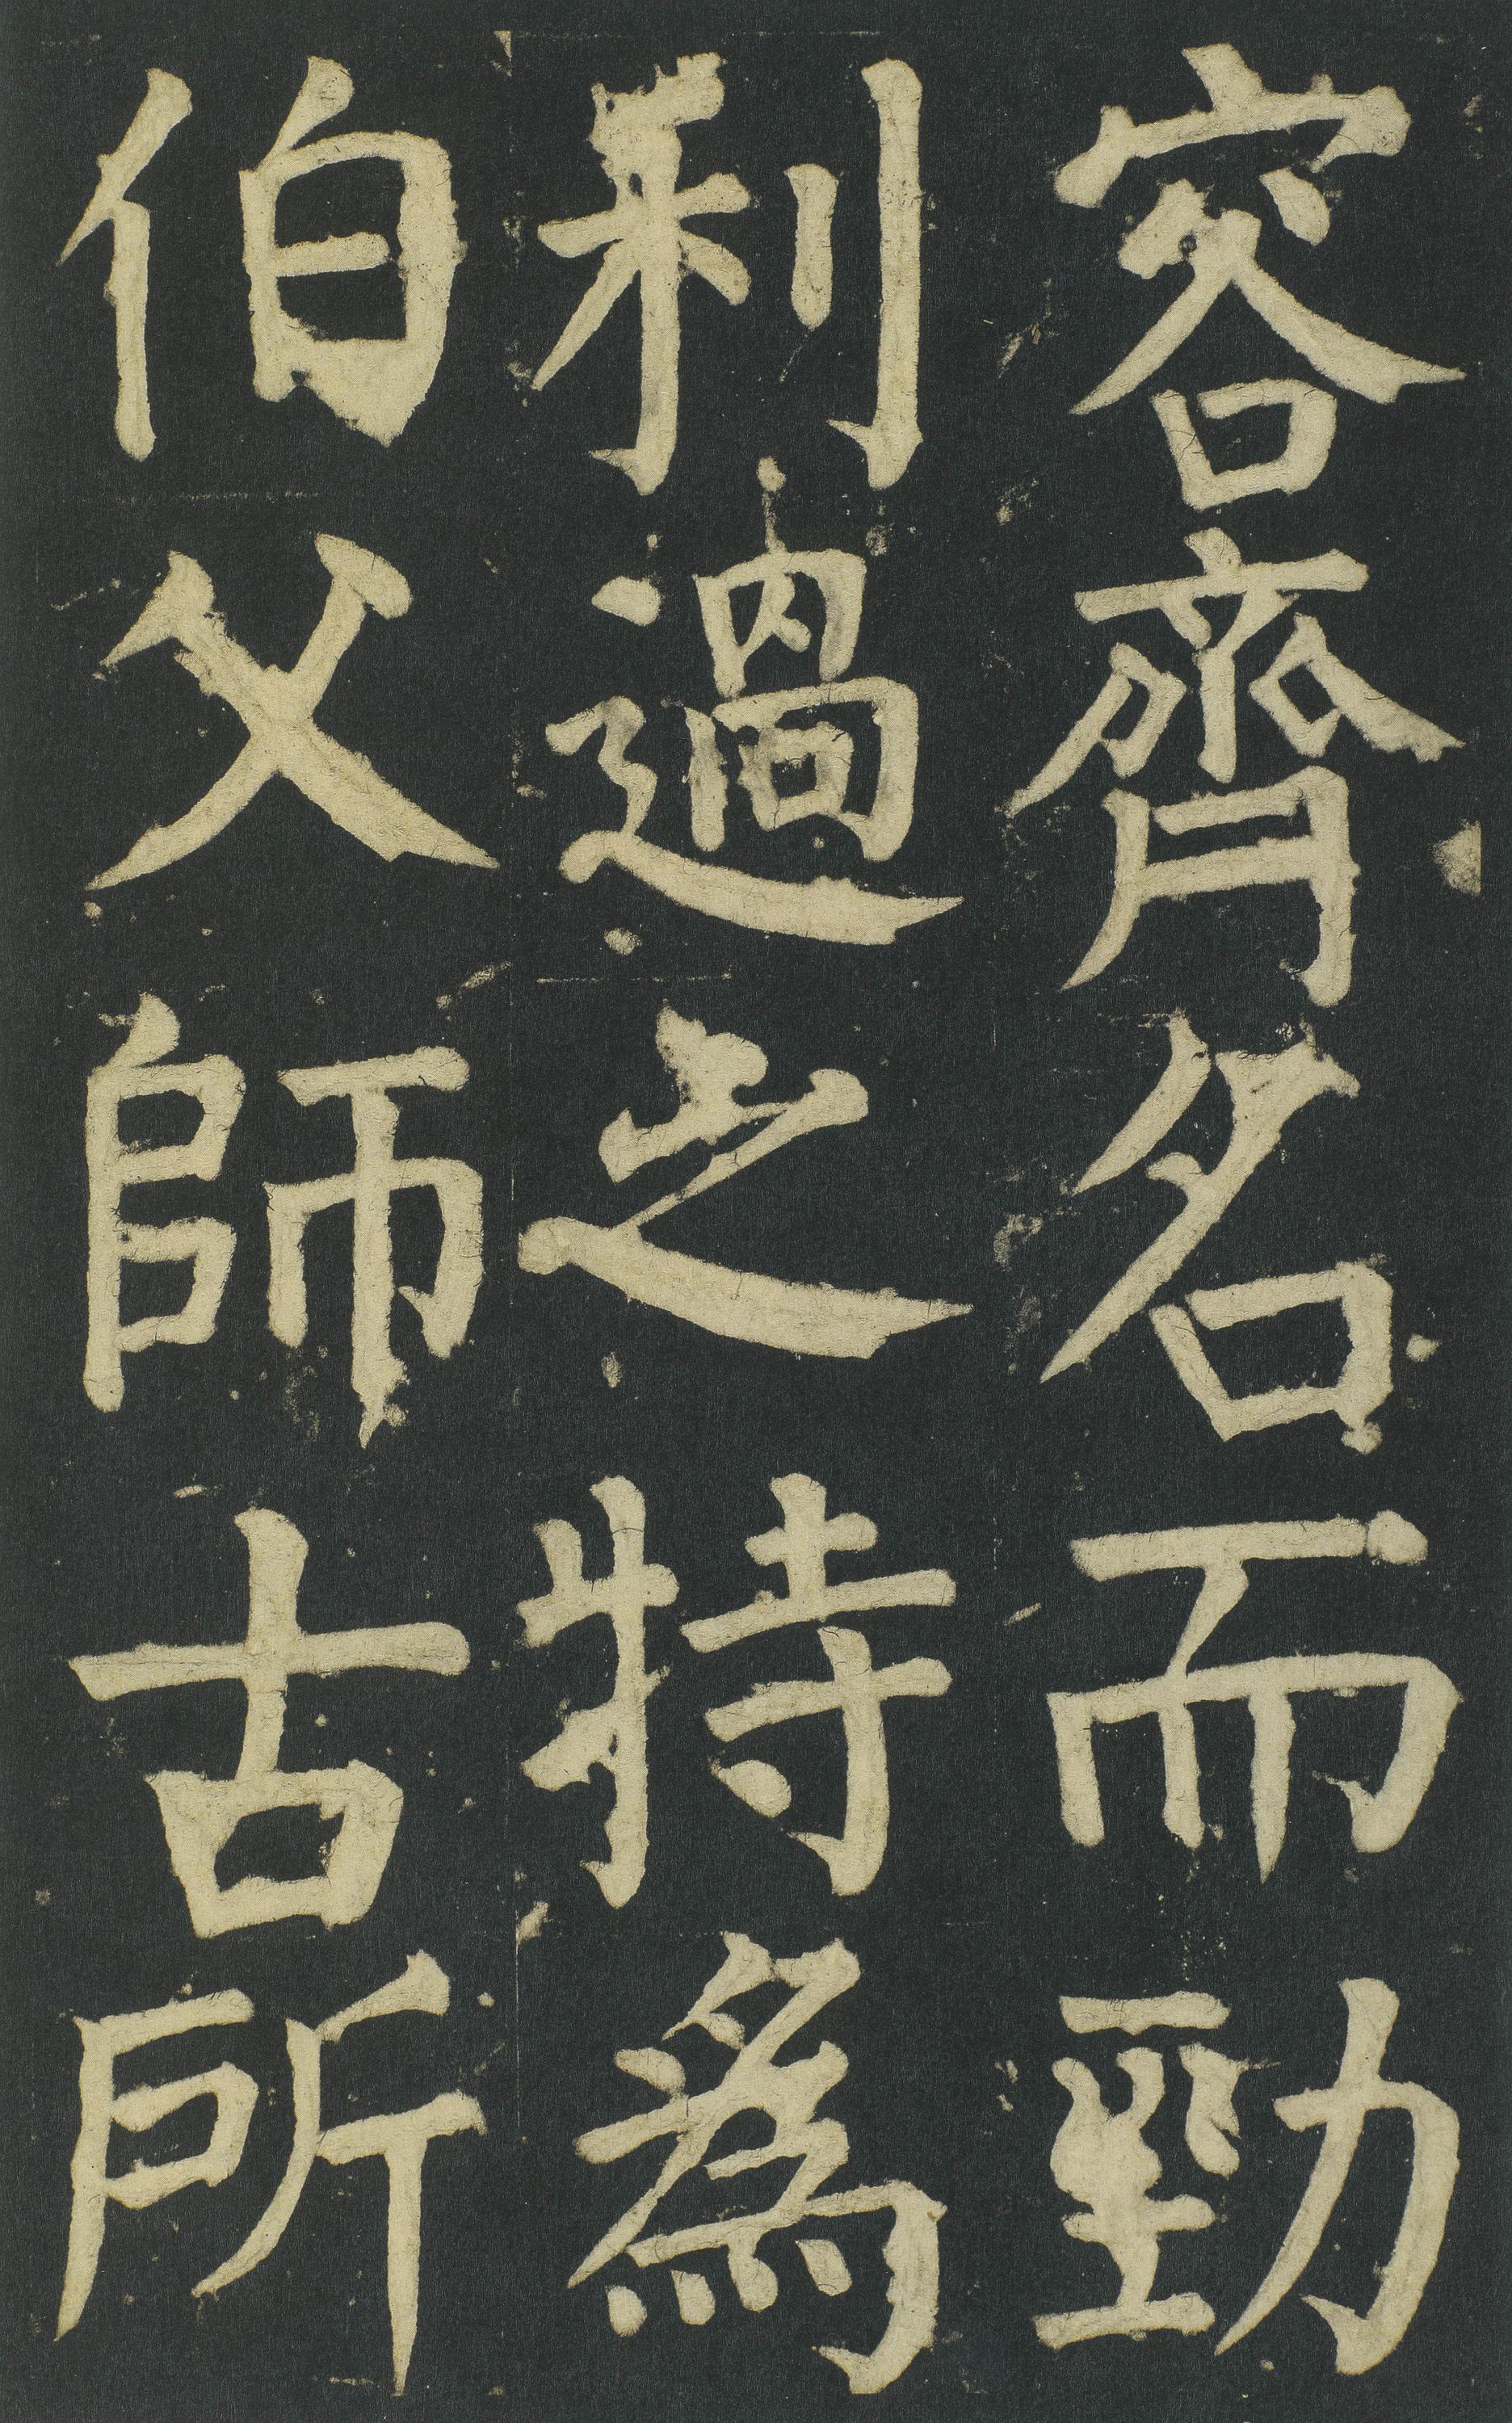 容齊名而勁
利過之特為
伯父師古所